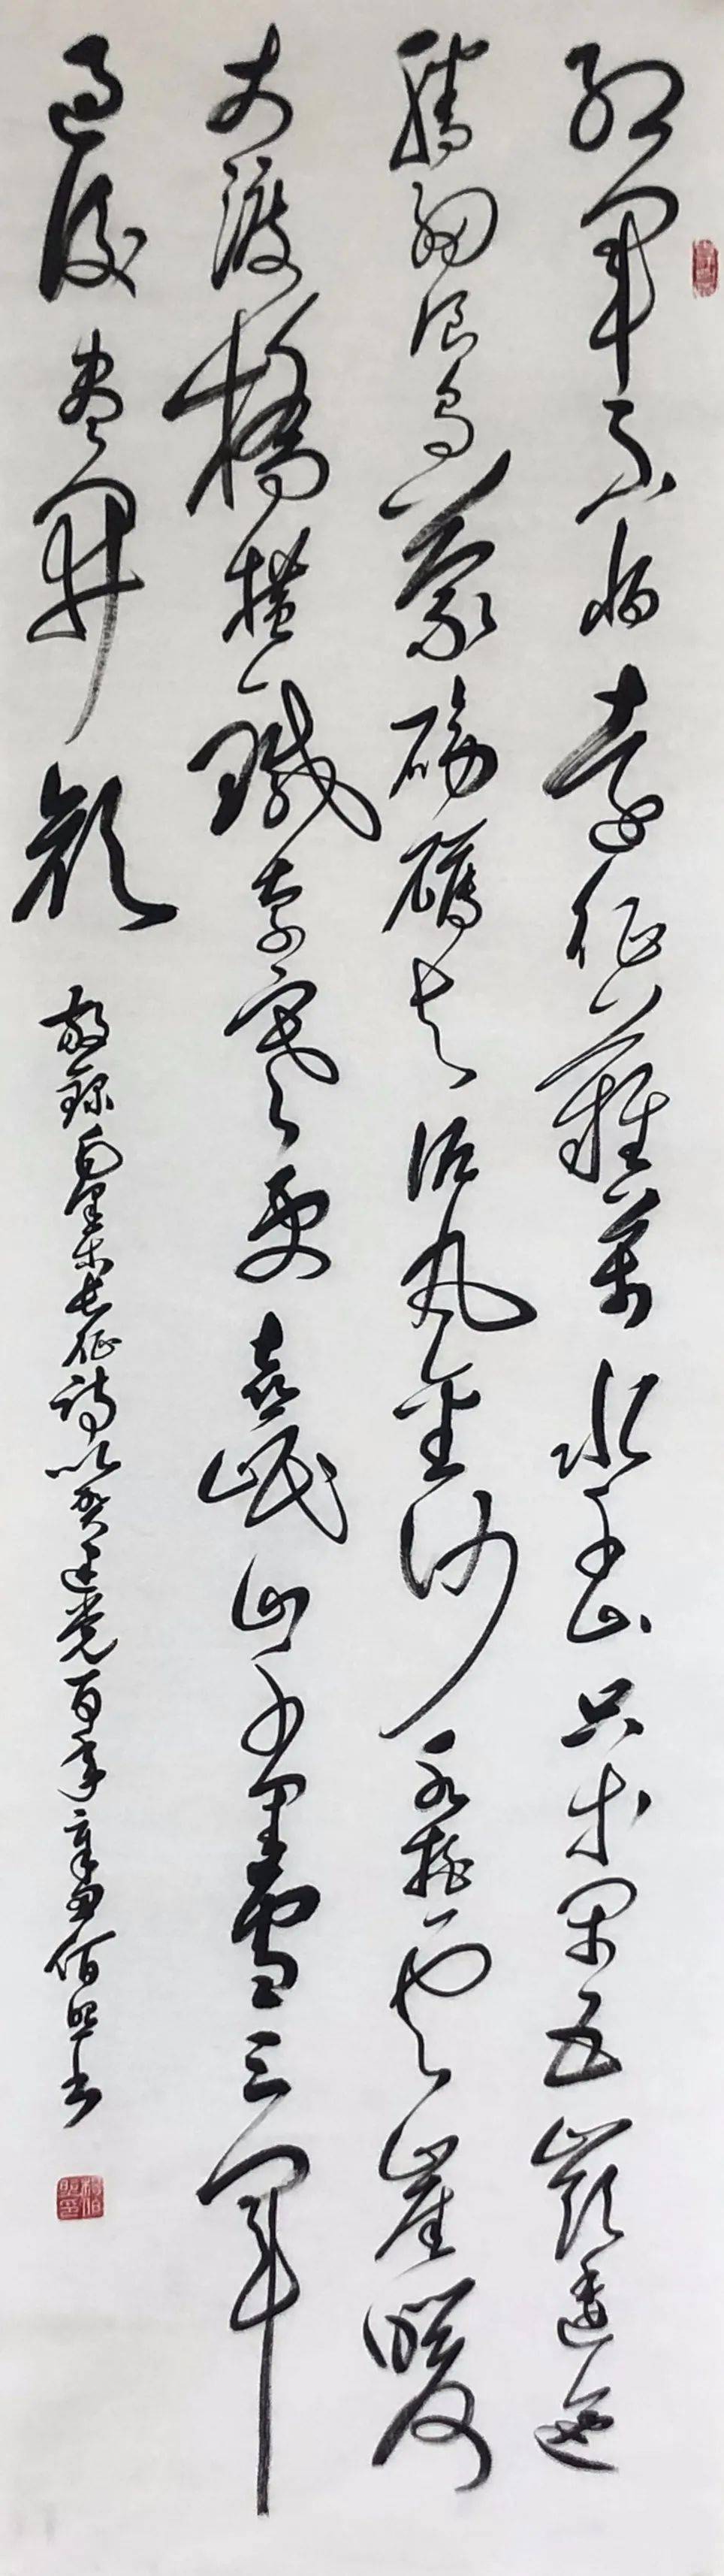 红军不怕远征难万水千山只等闲五岭逶迤
腾细浪乌蒙磅礴走泥丸金沙水拍云崖暖
大渡桥横铁索寒更喜岷山千里雪三军
过后尽开颜
敬录 长征诗以贺建党百年辛丑佰照书